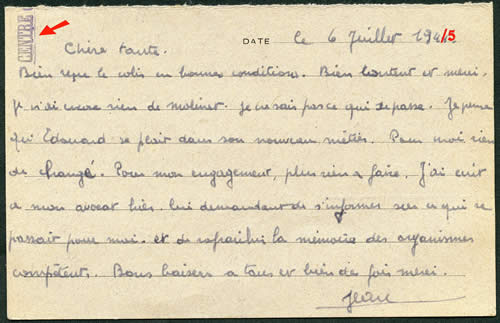 CENTRE
DATE le 6 Juillet 194/5
Chère tante.
Bien reçu le colis en bonnes conditions. Bien content et merci.
Je n'ai encore rien de molinet. Je ne sais pas ce qui se passe. Je pense
que Edouard se plait dans son nouveau métier. Pour moi rien
de changé. Pour mon engagement, plus rien a faire, J'ai écrit
a mon avocat hier. lui demandant de s'informer sur ce qui se
passait pour moi. et de rafraichir la mémoire des organismes
compétents. Bons baisers a tous et bien des fois merci.
Jean